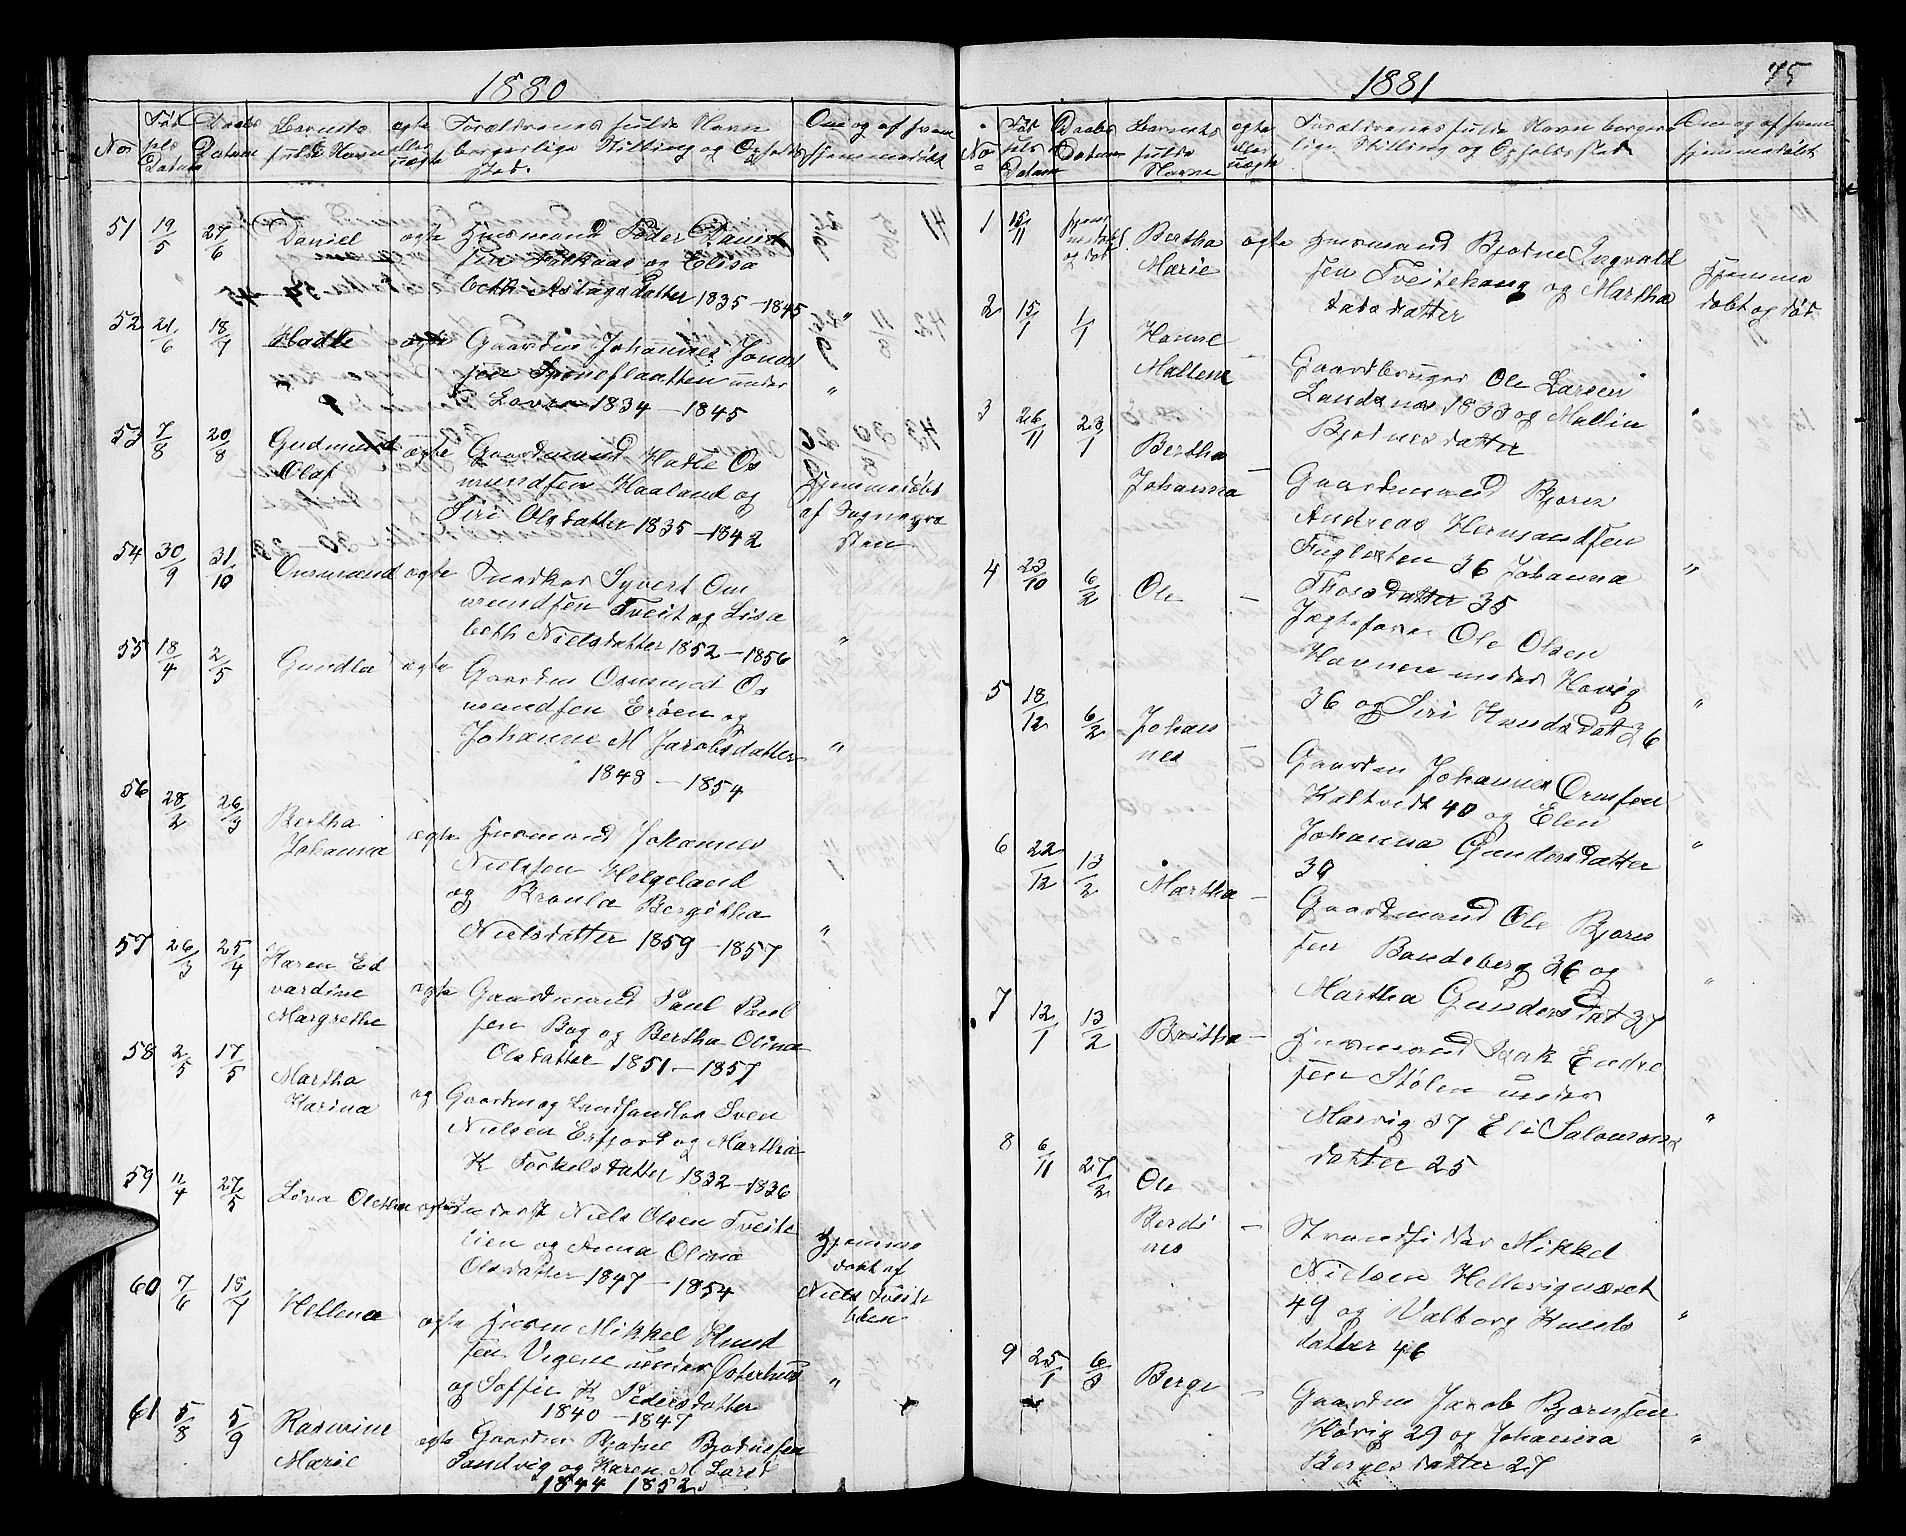 1880
No Fød sels Datum Daabs Datum Barnets fulde Navn ægte eller uægte Forældrenes fulde Navn borgerlige Stilling og Opholds sted. Om og af hvem hjemmedøbt
51 19/5 27/6 Daniel ægte Huusmand Peder Daniel
sen Falkaas og Elisa
beth Aslagsdatter 1835–1845 "
52 21/6 18/7 Hadle ægte Gaardm Johannes Jonas
sen under
1834–1845 "
53 7/8 20/8 Gudmund ægte Gaardmand Hadle Os
Olaf mundsen Haaland og Hjemmedøbt
Siri Olsdatter 1835–1842 af Sognepre
sten
54 30/9 31/10 Omsmund ægte Snedker Syvert Om
mundsen Tveit og Lisa
beth Nielsdatter 1852–1856 "
55 18/4 2/5 Gundla ægte Gaardm Osmund Os
mundsen Erøen og
Johanne M Jacobsdatter "
1848–1854
56 28/2 26/3 Bertha
Johanna ægte Huusmand Johannes
Nielssen Helgeland
og Bergitha
Nielsdatter 1859–1857 "
57 26/3 25/4 Karen Ed
vardine ægte Gaardmand Paul Paul
Margrethe sen Bog og Bertha Olina
Olsdatter 1851–1857
58 2/5 17/5 Martha
Karina æg Gaardm og Landhandler Sven
Nielsen Erfjord og Martha
K Torkelsdatter 1832–1836
59 11/4 27/5 Lova Oletha ægte Inderst Niels Olsen Tveite
lien og Anna Olina Hjemme
Olsdatter 1847–1854 døbt af
Niels Tveite
lien
60 7/6 18/7 Hellena ægte Huusm Mikkel Knud
sen Vigene under Østerhus
og Soffie K Pedersdatter "
1840–1847
61 5/8 5/9 Rasmine ægte Gaardm Bjodne Bjodnesen
Marie Sandvig og Karen M Larsd
1844 1852
1881 75
No Fød sels Datum Daabs Datum Barnets fulde Navn ægte eller uægte Forældrenes fulde Navn borger lige Stilling og Opholdssted Om og af hvem hjemmedøbt
1 15/11 hjem
medøbt
og død Bertha ægte Huusmand Bjodne Ingvald
Marie sen Tveitehaug og Martha Hjemme
datter døbt og død
2 15/1 1/1 Hanne
Mallene – Gaardbruger Ole Larsen
Landsnes 1833 og Mallin "
Bjodnesdatter
3 26/11 23/1 Bertha
Johanna – Gaardmand Bjorn
Andreas Hermandsen
Fuglesten 36 Johanna "
Thorsdatter 35
4 23/10 6/2 Ole – Jægtefører Ole Olsen
Havnen under Høvig
36 og Siri Knudsdat 36 "
5 18/12 6/2 Johan
nes – Gaardm Johannes Ormsen
Kaltvedt 40 og Elen
Johanna Gundersdatter "
39
6 22/12 13/2 Martha – Gaardmand Ole Bjorn
sen Bandeberg 36 og
Martha Gundersdat 37 "
7 12/1 13/2 Bertha – Huusmand Isak Endre
sen Stølen under
Marvig 37 Eli Salomons "
datter 25
8 6/11 27/2 Ole
Berdi
nes – Strandsidder Mikkel
Nielsen Hellevignæset
49 og Valborg Knuds "
datter 46
9 25/1 6/3 Berge – Gaardm Jacob Bjornsen
Høvig 29 og Johanna "
Bergesdatter 27